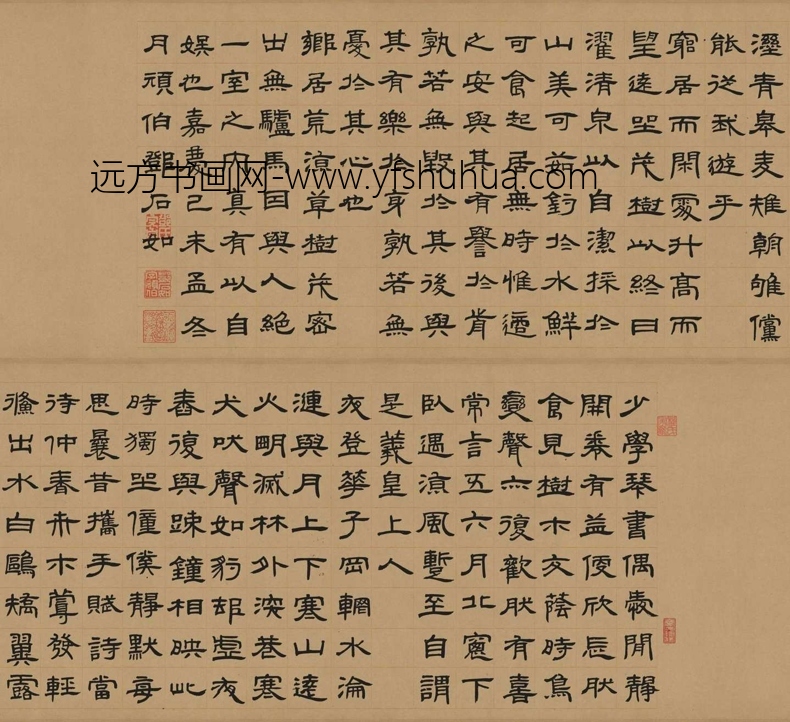 少學琴書偶愛閒靜
開卷有益便欣肰
食見樹木交蔭時鳥
變聲亦復歡肰有喜
常言五六月北窻下
臥遇涼風暫至自謂
是羲皇上人
夜登華子岡輞水淪
漣與月上下寒山遠
火明滅林外深巷寒
犬吠聲如豹邨虛夜
舂復與疎鐘相映此
時獨坐僮僕靜默每
思曩昔攜手賦詩當
待仲春卉木蔓發輕
鯈出水白鷗矯翼露
溼青皋麦雉朝雊儻
能從我遊乎
窮居而閑處升高而
望遠坐茂樹以終日
濯清泉以自潔採於
山美可茹釣於水鮮
可食起居無時惟適
之安與其有譽於歬
孰若無毀於其後與
其有樂於身孰若無
憂於其心也
鄉居荒涼草樹茂密
出無驢馬因與人絕
一室之内真有以自
娛也嘉慶己未孟冬
月頑伯鄧石如
远方书画网-www.yfshuhua.com